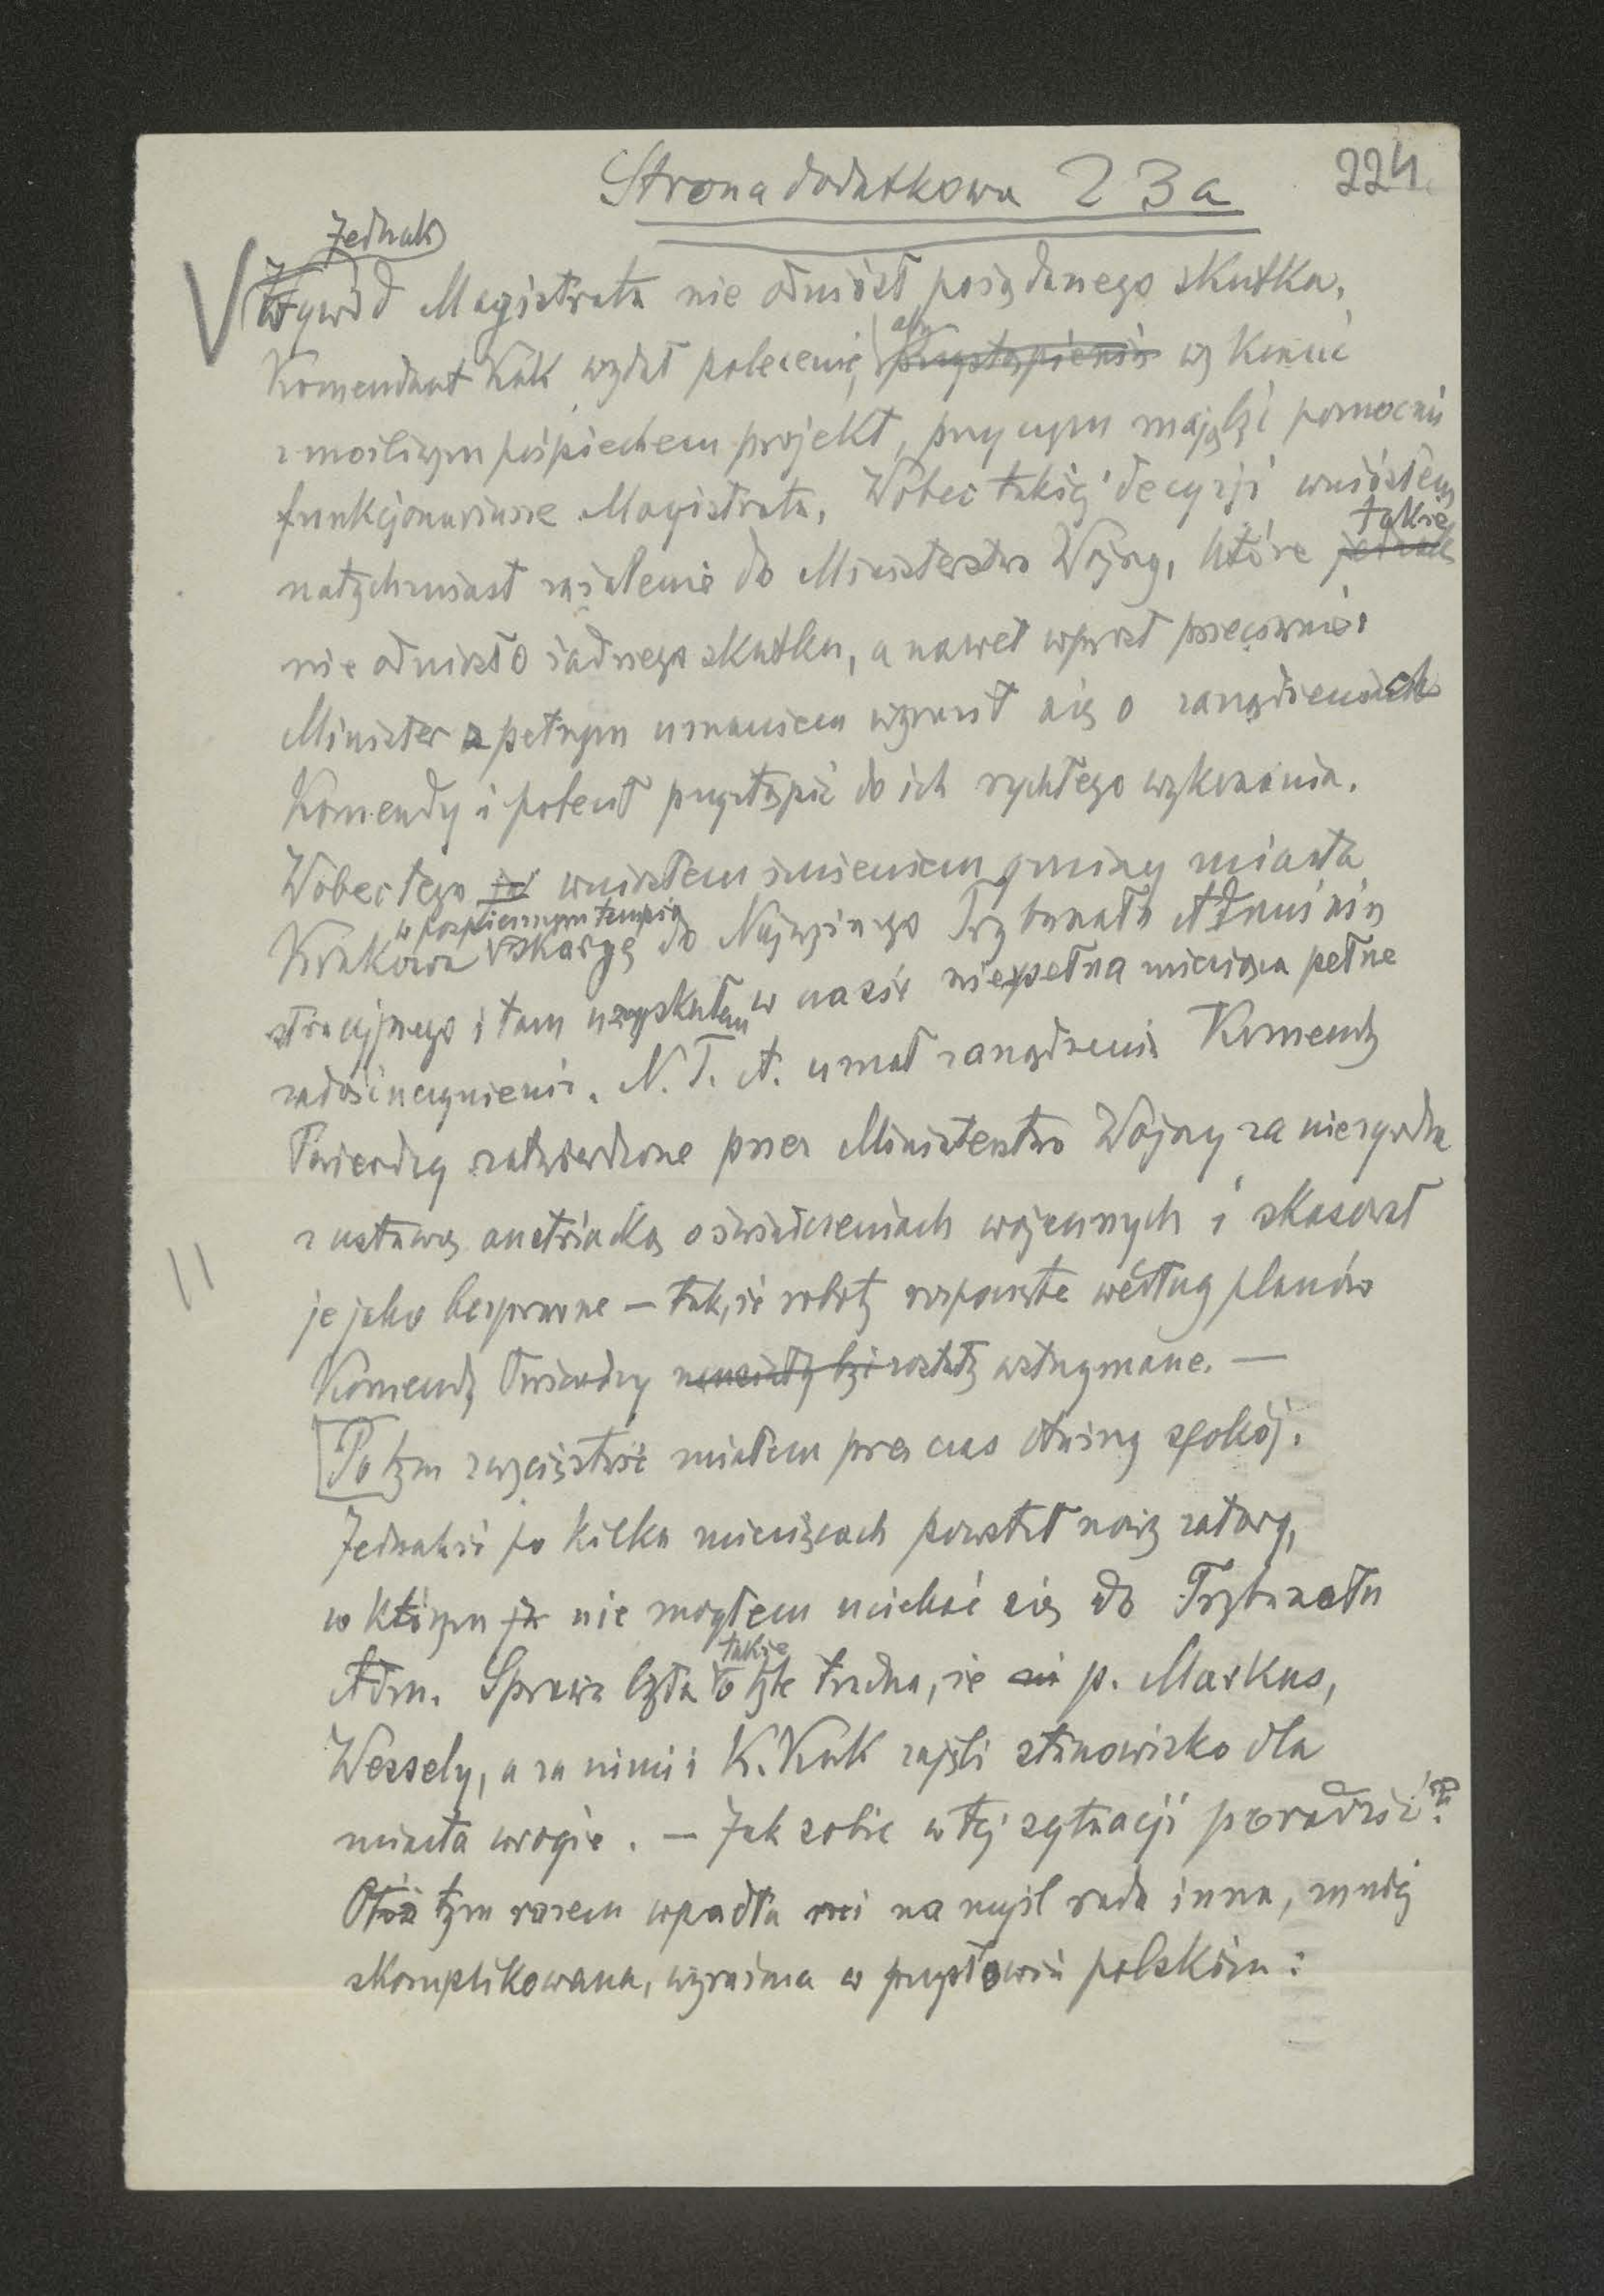 Strona dodatkowa 23a
224
Jednak
Wywód Magistratu nie odniósł pożądanego skutku.
Komendant Kuk wydał polecenie, aby przystąpienia wykonać
z możliwym pośpiechem projekt, przy czym mają być pomocni
funkcjonariusze Magistratu. Wobec takiej decyzji wniósłem
także
natychmiast zażalenie do Ministerstwa Wojny, które jednak
nie odniosło żadnego skutku, a nawet wprost przeciwnie:
Minister z pełnym uznaniem wyraził się o zarządzeniach
Komendy i polecił przystąpić do ich rychłego wykonania.
Wobec tego ja wniosłem imieniem gminy miasta
w pospiesznym tempie
Krakowa skargę do Najwyższego Trybunału Admini
stracyjnego i tam uzyskałem w czasie niespełna miesiąca pełne
zadośćuczynienie. N. T. A. uznał zarządzenia Komendy
Twierdzy zatwierdzone przez Ministerstwo Wojny za niezgodne
z ustawą austriacką o świadczeniach wojennych i skasował
je jako bezprawne – tak, że roboty rozpoczęte według planów
Komendy Twierdzy musiały być zostały wstrzymane. –
Po tym zwycięstwie miałem przez czas dłuższy spokój.
Jednakże po kilku miesiącach powstał nowy zatarg,
w którym ja nie mogłem uciekać się do Trybunału
także
Adm. Sprawa była o tyle trudna, że p. Markus,
Wessely, a za nimi i K. Kuk zajęli stanowisko dla
miasta wrogie. – Jak sobie w tej sytuacji poradzić?
Otóż tym razem wpadła mi na myśl rada inna, mniej
skomplikowana, wyrażona w przysłowiu polskim: